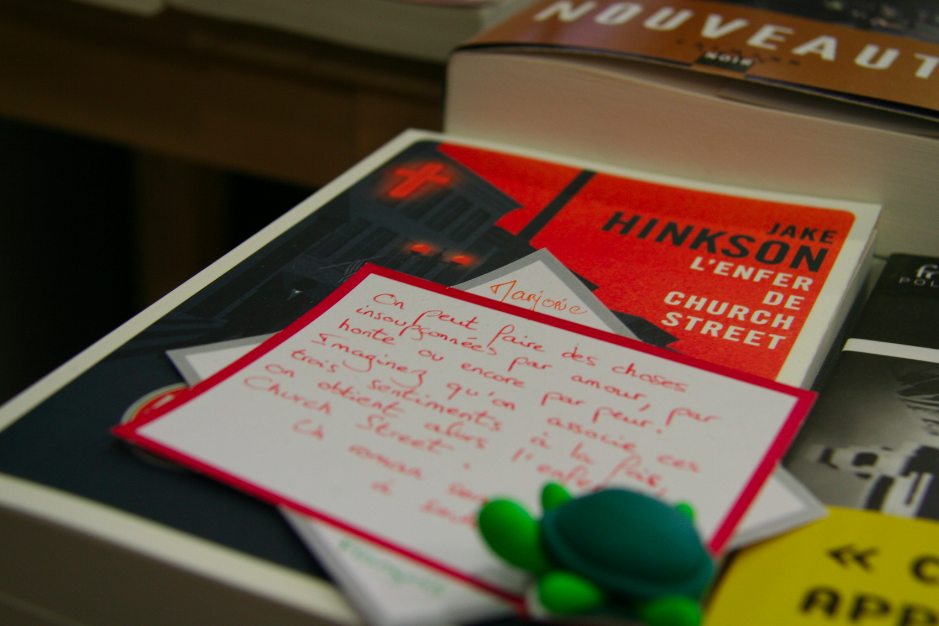 NOUVEAUT
NOIR
JAKE
HINKSON
L'ENFER
DE
CHURCH
STREET
Marjorie
On peut faire des choses
insoupçonnées par amour, par
honte ou encore par peur.
Imaginez qu'on associe ces
trois sentiments à la fois,
on obtient alors l'enfer
Church Street.
Un roman
à
POL
« C
APP